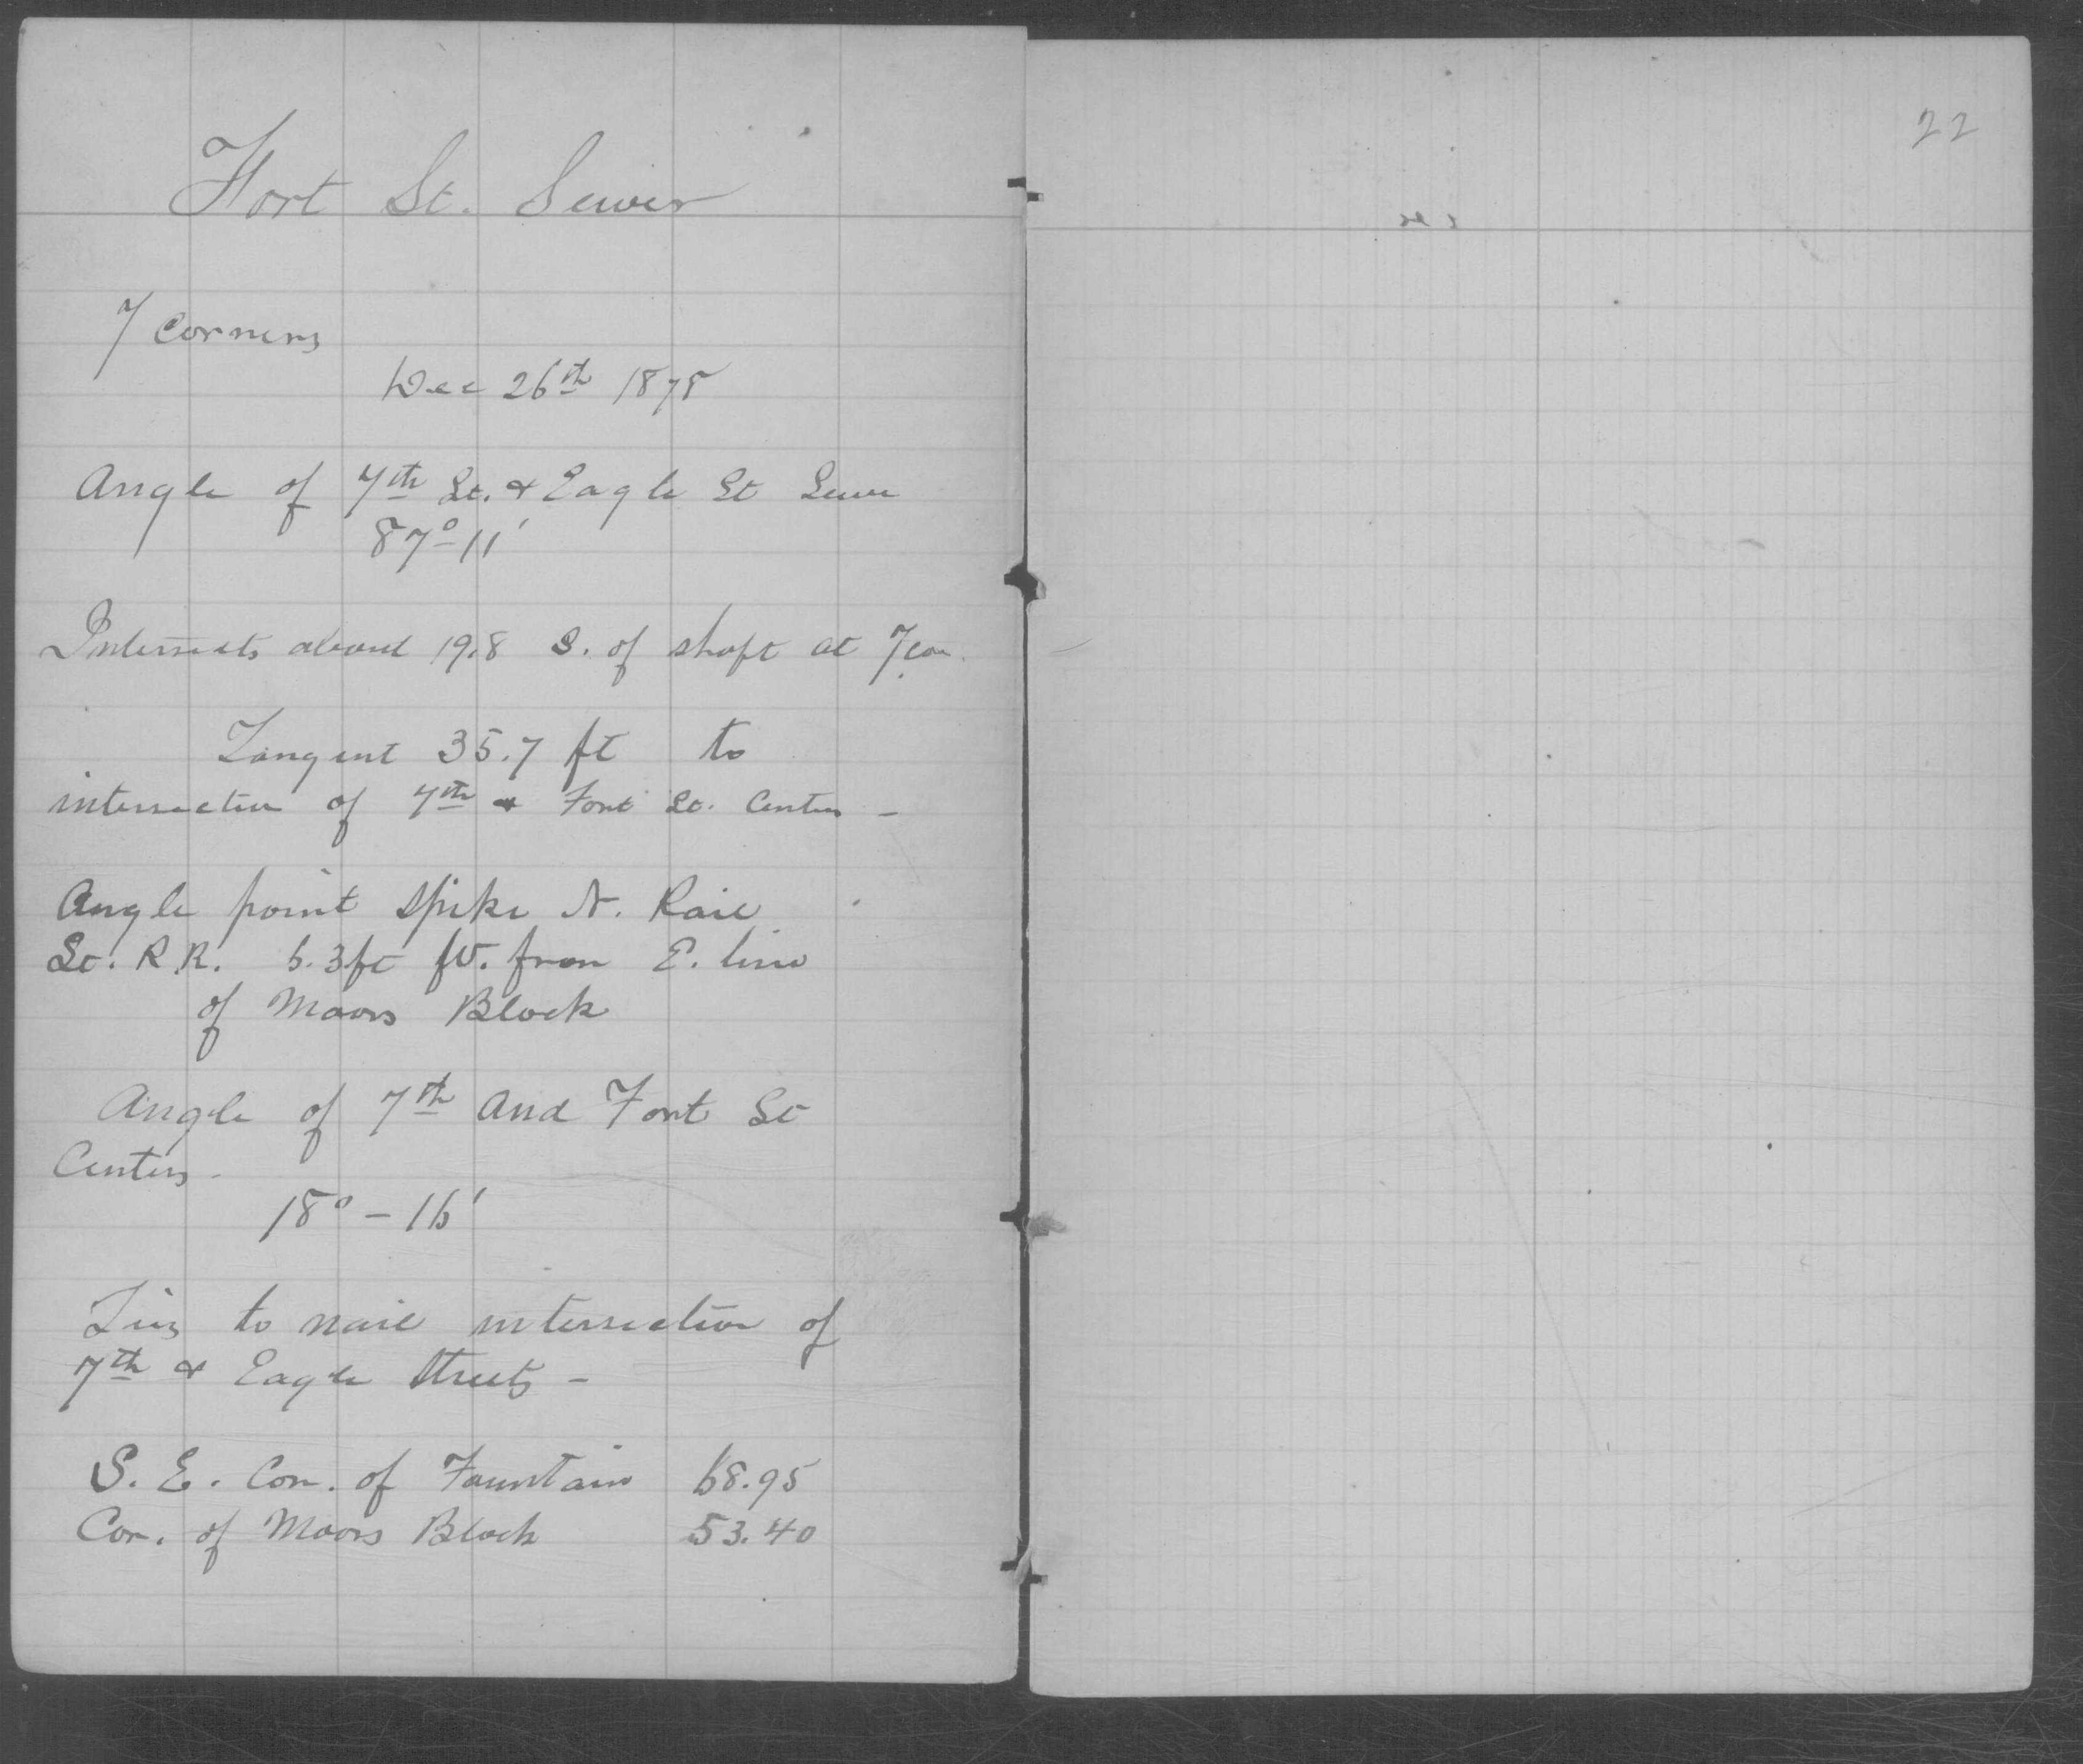 Fort St. Sewer
7 Corners
Dec 26th 1878
Angle of 7th St. & Eagle St Sewer
87° 11'
Intersects about 19.8 S. of shaft at 7 Cor.
Tangent 35.7 ft to
intersection of 7th & Fort St. Centers -
Angle point Spike N. Rail
St. R.R. 6.3 ft W. from E. line
of Moors Block
Angle of 7th and Fort St
Centers -
18° - 16'
Ties to nail intersection of
7th & Eagle Streets -
S. E. Cor. of Fountain 68.95
Cor. of Moors Block 53.40
22